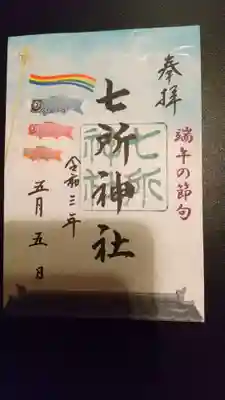 奉拝
端午の節句
七所神社
七所
神社
令和三年
五月五日